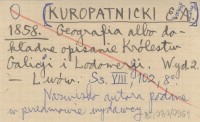 [KUROPATNICKI E. A.]
1858. Geografia albo do-
kładne opisanie Królestw
Galicji i Lodomerji. Wyd 2.
— Lwów. Ss. VIII, 102, 8.
Nazwisko autora podane
w przedmowie wydawcy